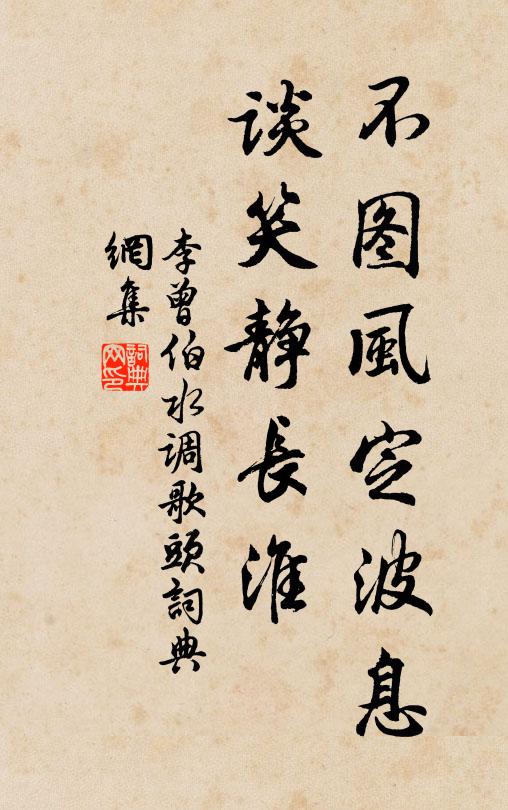 不图風定波息
谈笑静長淮
李曾伯水调歌頭詞典
網集
詞典
网印